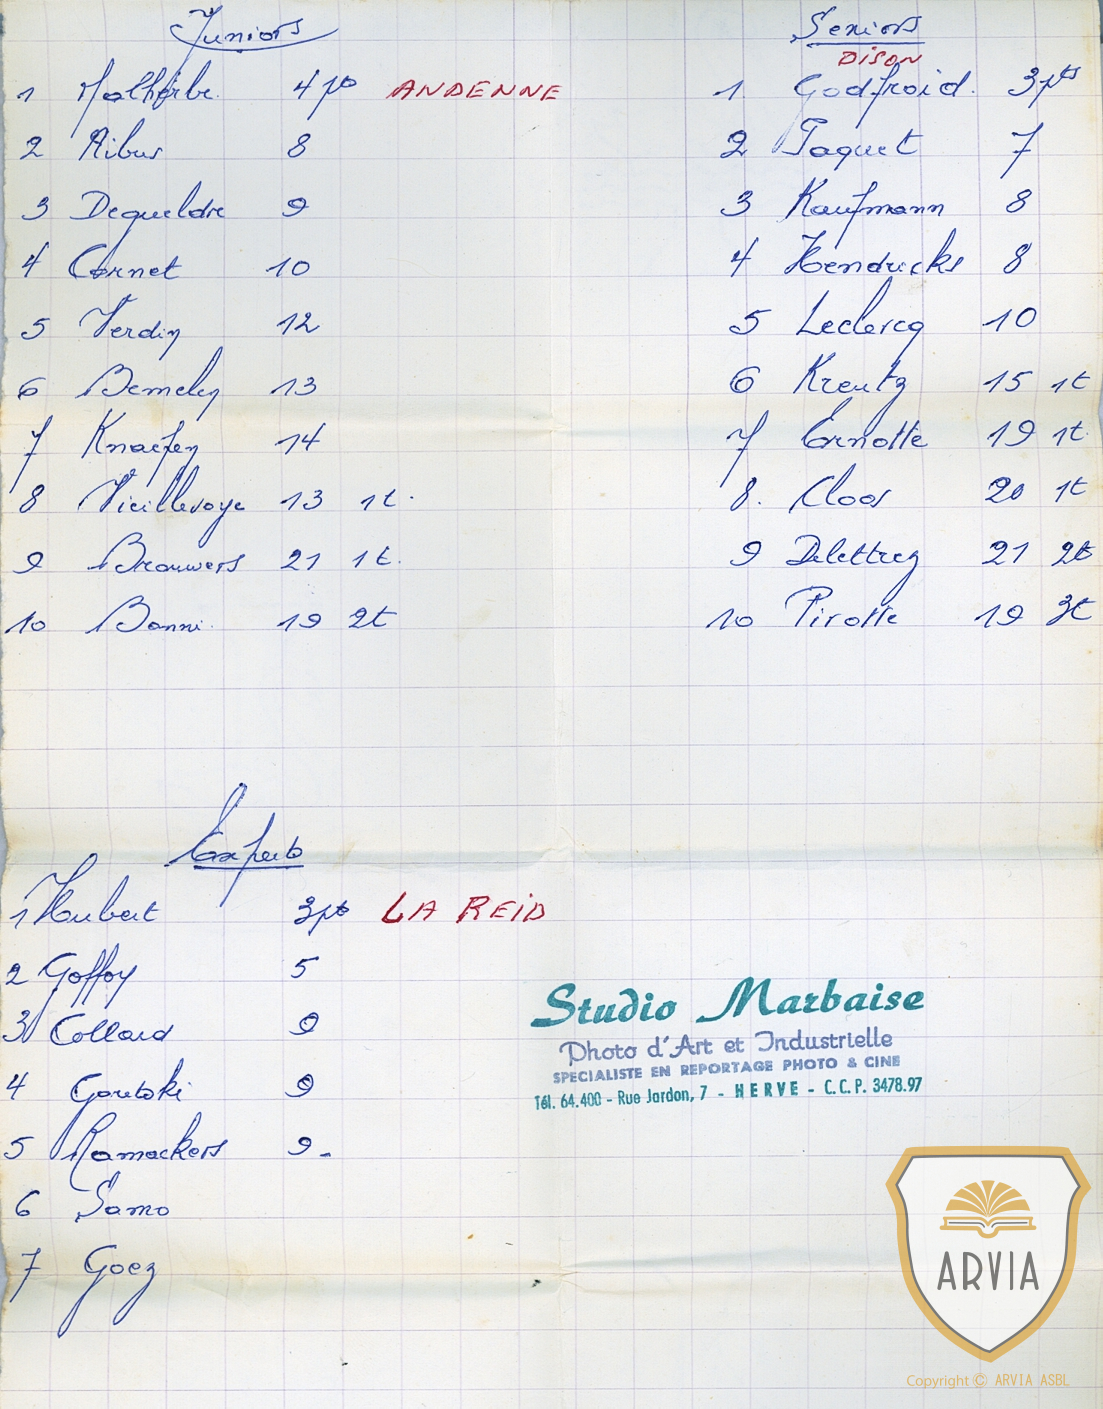 Juniors
1 Malherbe 4 pts ANDENNE
2 Ribus 8
3 Degueldre 9
4 Cornet 10
5 Verdin 12
6 13
7 14
8 Vieillevoye 13 1t.
9 Brouwers 21 1t.
10 Bonni 19 2t
Seniors
DISON
1 Godfroid. 3pts
2 Paquet 7
3 Kaufmann 8
4 Hendricks 8
5 Leclercq 10
6 Kreutz 15 1t
7 Ernotte 19 1t.
8. Cloos 20 1t
9 Delettrez 21 2t
10 Pirotte 19 3t
Experts
1 Hubert 3pts LA REID
2 Goffoy 5
3 Collard 9
4 9
5 Ramackers 9-
6 Samo
7 Goez
Studio Marbaise
Photo d'Art et Industrielle
SPECIALISTE EN REPORTAGE PHOTO & CINE
Tél. 64.400 - Rue Jardon, 7 - HERVE - C.C.P. 3478.97
ARVIA
Copyright © ARVIA ASBL